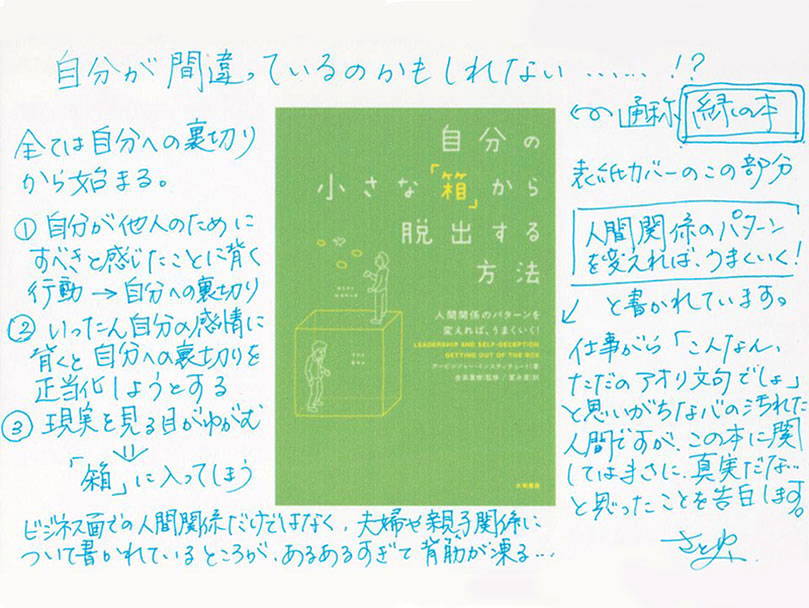 自分が間違っているのかもしれない……!?
全ては自分への裏切り
から始まる。
① 自分が他人のために
すべきと感じたことに背く
行動→自分への裏切り
② いったん自分の感情に
背くと自分への裏切りを
正当化しようとする
③ 現実を見る目がゆがむ
「箱」に入ってしまう
自分の
小さな「箱」から
脱出する
方法
人間関係のパターンを
変えれば、うまくいく!
LEADERSHIP AND SELF-DECEPTION
GETTING OUT OF THE BOX
アービンジャー・インスティチュート 著
金森重樹 監修/冨永星 訳
大和書房
通称 緑の本
表紙カバーのこの部分
人間関係のパターン
を変えれば、うまくいく!
と書かれています。
仕事がら「こんなん、
ただのアオリ文句でしょ」
と思いがちな心の汚れた
人間ですが、この本に関
してはまさに、真実だな…
と思ったことを告白します。
ビジネス面での人間関係だけではなく、夫婦や親子関係に
ついて書かれているところが、あるあるすぎて背筋が凍る…